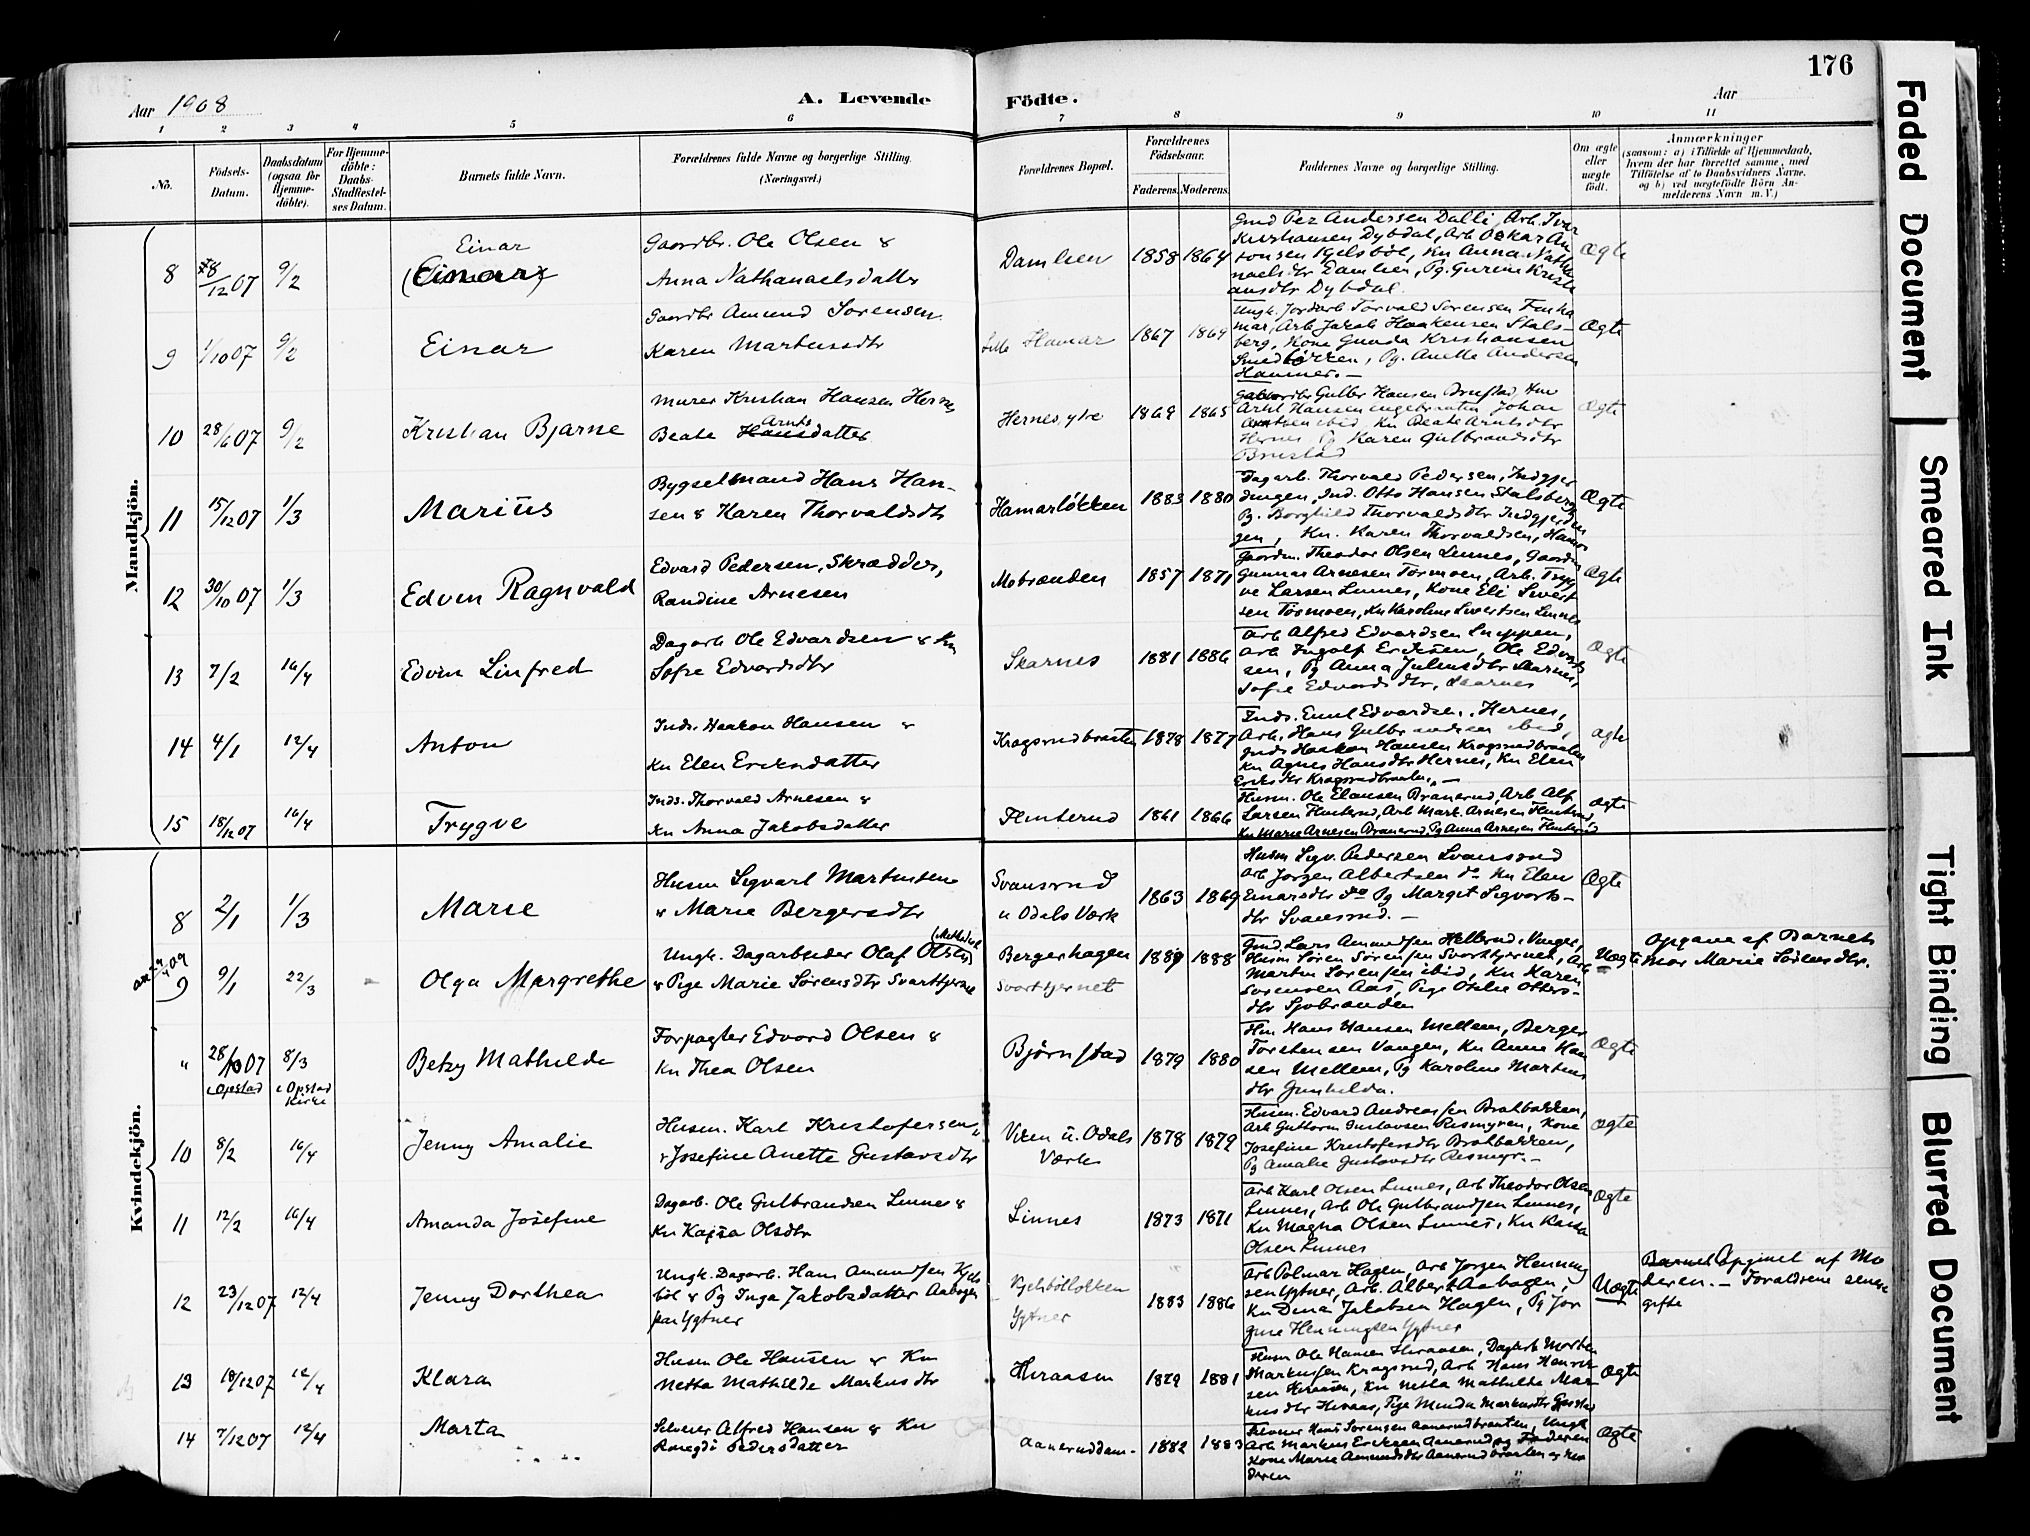 176
Aar 1908
A. Levende Födte.
Aar
1 2 3 4 5 6 7 8 9 10 11
No.
Födsels-Datum.
Daabsdatum (ogsaa for Hjemme-döbte).
For Hjemme-döbte: Daabs-Stadfæstel-ses Datum.
Barnets fulde Navn.
Forældrenes fulde Navne og borgerlige Stilling. (Næringsvei.)
Forældrenes Bopæl.
Forældrenes Födselsaar.
Faderens. Moderens.
Faddernes Navne og borgerlige Stilling.
Om ægte eller uægte födt.
Anmærkninger
(saasom: a) i Tilfælde af Hjemmedaab, hvem der har forrettet samme, med Tilföielse af to Daabsvidners Navne, og b) ved uægtefödte Börn An-melderens Navn m. V.)
Mandkjön.
8 8/12 07 9/2 Einar (Einar)
Gaardbr. Ole Olsen &
Anna Nathanaelsdatter
Damlien 1858 1864
Gmd Per Andersen Dalli, Arb. Ivar
Kristiansen Dybdal, Arb Oskar An
tonsen Kjelsböl, Kn Anna Natha
naelsdtr Damlien, Pg. Gurine Kristi
ansdtr Dybdal.
Ægte
9 1/10 07 9/2 Einar
Gaardbr Amund Sörensen
Karen Martinsdtr
Lille Hamar 1867 1869
Ungk. Jordarb Torvald Sorensen
mar, Arb Jakob Haakensen Stals-
berg, Kone Gunda Kristiansen
Pg. Anette Andersen
Hammer. —
Ægte
10 28/6 07 9/2 Kristian Bjarne
Murer Kristian Hansen Hernes
Beate Arntsdatter
Hernes, ytre 1869 1865
Gullbr Hansen Brustad
Arhl Hansen Johan
Arntsen ibid, Kn Beate Arntsdtr
Hernes Pg Karen Gulbrandsdtr
Brustad
Ægte
11 15/12 07 1/3 Marius
Bygselmand Hans Han-
sen & Karen Thorvaldsdtr
Hamarlökken 1883 1880
Dagarb. Thorvald Pedersen, Indgjer
dingen, Ind. Otto Hansen Stalsberg
Pg. Borghild Thorvaldsdtr Indgjerdin
gen, Kn. Karen Thorvaldsen, Hamar
Ægte
12 30/10 07 1/3 Edvin Ragnvald
Edvard Pedersen, Skrædder,
Randine Arnesen
Mobrænden 1857 1871
Gaardm. Theodor Olsen Linnes, Gaardm
Gunnar Arnesen Tormoen, Arb. Tryg
ve Larsen Linnes, Kone Eli Sivert
sen Tormoen, Kn Karoline Sivertsen Linnes
Ægte
13 7/2 16/4 Edvin Linfred
Dagarb Ole Edvardsen & Kn
Sofie Edvardsdtr
Skarnes 1881 1886
Arb Alfred Edvardsen Snippen,
Arb Ingolf Eriksen, Ole Edvard
sen, Pg Anna Juliusdtr Skarnes,
Sofie Edvardsdtr, Skarnes
Ægte
14 4/1 12/4 Anton
Inds. Haakon Hansen &
Kn Elen Eriksdatter
Kragsrudbraaten 1878 1877
Inds. Emil Edvardsen, Hernes,
Arb. Hans Gulbrandsen ibid,
Inds Haakon Hansen Kragsrudbraaten
Kn Agnes Hansdtr Hernes, Kn Elen
Eriksdtr Kragsrudbraaten. —
Ægte
15 18/12 07 16/4 Trygve
Inds. Thorvald Arnesen &
Kn Anna Jakobsdatter
Flinterud 1861 1866
Husm. Ole Elausen Branerud, Arb Alf
Larsen Flinterud, Arb Mark. Arnesen Flinterud,
Kn Marie Arnesen Branerud Pg Anna Arnesen Flinterud
Ægte
Kvindekjön.
8 2/1 1/3 Marie
Husm Sigvart Martinsen
& Marie Bergersdtr
Svansrud
u Odals Værk 1863 1869
Husm Sigv. Pedersen Svansrud
Arb Jörgen Albertsen do Kn Elen
Einarsdtr do Pg Margit Sigvarts-
dtr Svansrud. —
Ægte
9 9/1 22/3 Olga Margrethe
Ungk. Dagarbeider Olaf Olsen (Methodist)
& Pige Marie Sörensdtr Svarttjernet
Bergerhagen
Svarttjernet
1889 1888
Gmd. Lars Amundsen Hellerud Vanger,
Husm Sören Sörensen Svarttjernet, Arb
Martin Sörensen ibid, Kn Karen
Sorensen Aas, Pige Otilie Otters-
dtr Sjobrænden
Uægte
Opgave af Barnets
Mor Marie Sörensdtr.
" 28/10 07 i Opstad 8/3 i Opstad Kirke
Betzy Mathilde
Forpagter Edvard Olsen &
Kn Thea Olsen
Björnstad 1879 1880
Hm Hans Hansen Mellem, Berger
Torstensen Vangen, Kn Anne Han
sen Mellem, Pg Karoline Martins
dtr Gunhilda.
Ægte
10 8/2 16/4 Jenny Amalie
Husm. Karl Kristofersen
& Josefine Anette Gustavsdtr
Viken u. Odals
Værk
1878 1879
Husm. Edvard Andreassen Bratbakken,
Arb Guttorm Gustavsen Rismyren, Kone
Josefine Kristofersdtr Bratbakken,
Pg Amalie Gustavsdtr Rismyr. —
Ægte
11 12/2 16/4 Amanda Josefine
Dagarb. Ole Gulbrandsen Linnes &
Kn Kajsa Olsdtr
Linnes 1873 1871
Arb Karl Olsen Linnes, Arb Theodor Olsen
Linnes, Arb Ole Gulbrandsen Linnes,
Kn Magna Olsen Linnes, Kn Kaisa
Olsen Linnes
Ægte
12 23/12 07 12/4 Jenny Dorthea
Ungk. Dagarb. Hans Amundsen Kjels
böl & Pg Inga Jakobsdatter Aabogen
Ygtner
Kjelsböllökken
Ygtner
1883 1886
Arb Polmar Hagen, Arb Jörgen Henning
sen Ygtner, Arb. Albert Aabogen,
Kn Dina Jakobsen Hagen, Pg Jör
gine Henningsen Ygtner
Uægte
Barnet Opgivet af Mo
deren. — Forældrene senere
gifte
13 18/12 07 12/4 Klara
Husm Ole Hansen & Kn
Netta Mathilde Markusdtr
Heraasen 1879 1881
Husm Ole Hansen Heraasen, Dagarb Morten
Markussen Kragsrud, Arb Hans Henrik
sen Heraasen, Kn Netta Mathilde Mar
kusdtr Heraas, Pige Minda Markusdtr
Ægte
14 7/12 07 12/4 Marta
Selveier Alfred Hansen & Kn
Ragndi Pedersdatter
Aaneruddam. 1882 1883
Selveier Hans Sorensen Aanerudbraaten, Ungk
Arb Markus Eriksen Aanerud og Faderen
Kone Marie Amundsdtr Aanerudbraaten og Mo
deren
Ægte
Faded Document
Smeared Ink
Tight Binding
Blurred Document